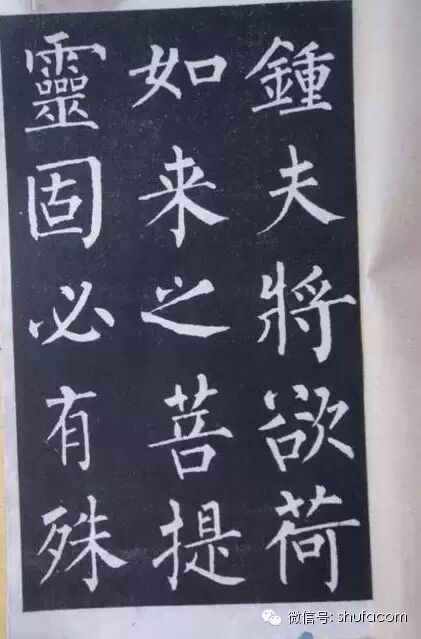 鍾夫將欲荷
如来之菩提
靈固必有殊
微信号: shufacom